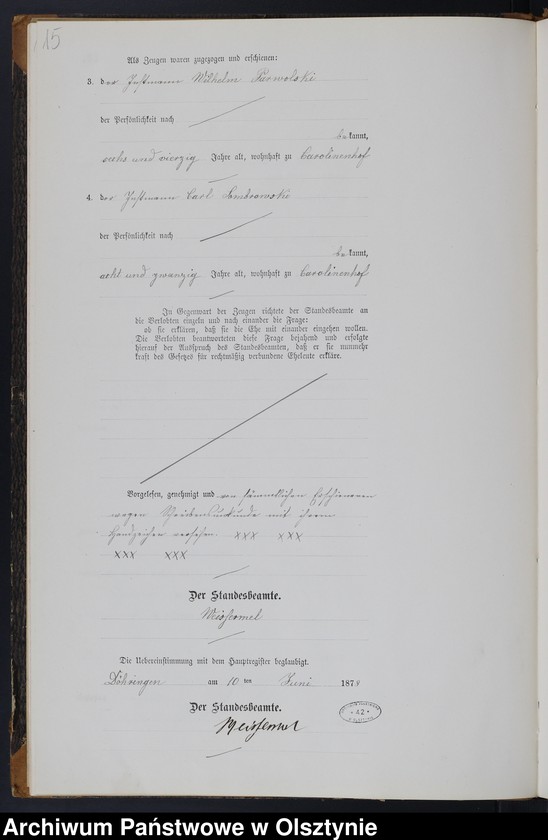 15
Als Zeugen waren zugezogen und erschienen:
3. der Instmann Wilhelm
der Persönlichkeit nach
bekannt,
sechs und vierzig Jahre alt, wohnhaft zu Carolinenhof
4. der Instmann Carl
der Persönlichkeit nach
bekannt,
acht und zwanzig Jahre alt, wohnhaft zu Carolinenhof
In Gegenwart der Zeugen richtete der Standesbeamte an
die Verlobten einzeln und nach einander die Frage:
ob sie erklären, daß sie die Ehe mit einander eingehen wollen.
Die Verlobten beantworteten diese Frage bejahend und erfolgte
hierauf der Ausspruch des Standesbeamten, daß er sie nunmehr
kraft des Gesetzes für rechtmäßig verbundene Eheleute erkläre.
Vorgelesen, genehmigt und von sämmtlichen Erschienenen
wegen Schreibensunkunde mit ihrem
Handzeichen versehen. XXX XXX
XXX XXX
Der Standesbeamte.
Weissermel
Die Uebereinstimmung mit dem Hauptregister beglaubigt.
Döhringen am 10 ten Juni 1878
Der Standesbeamte.
Weissermel
Archiwum Państwowe w Olsztynie